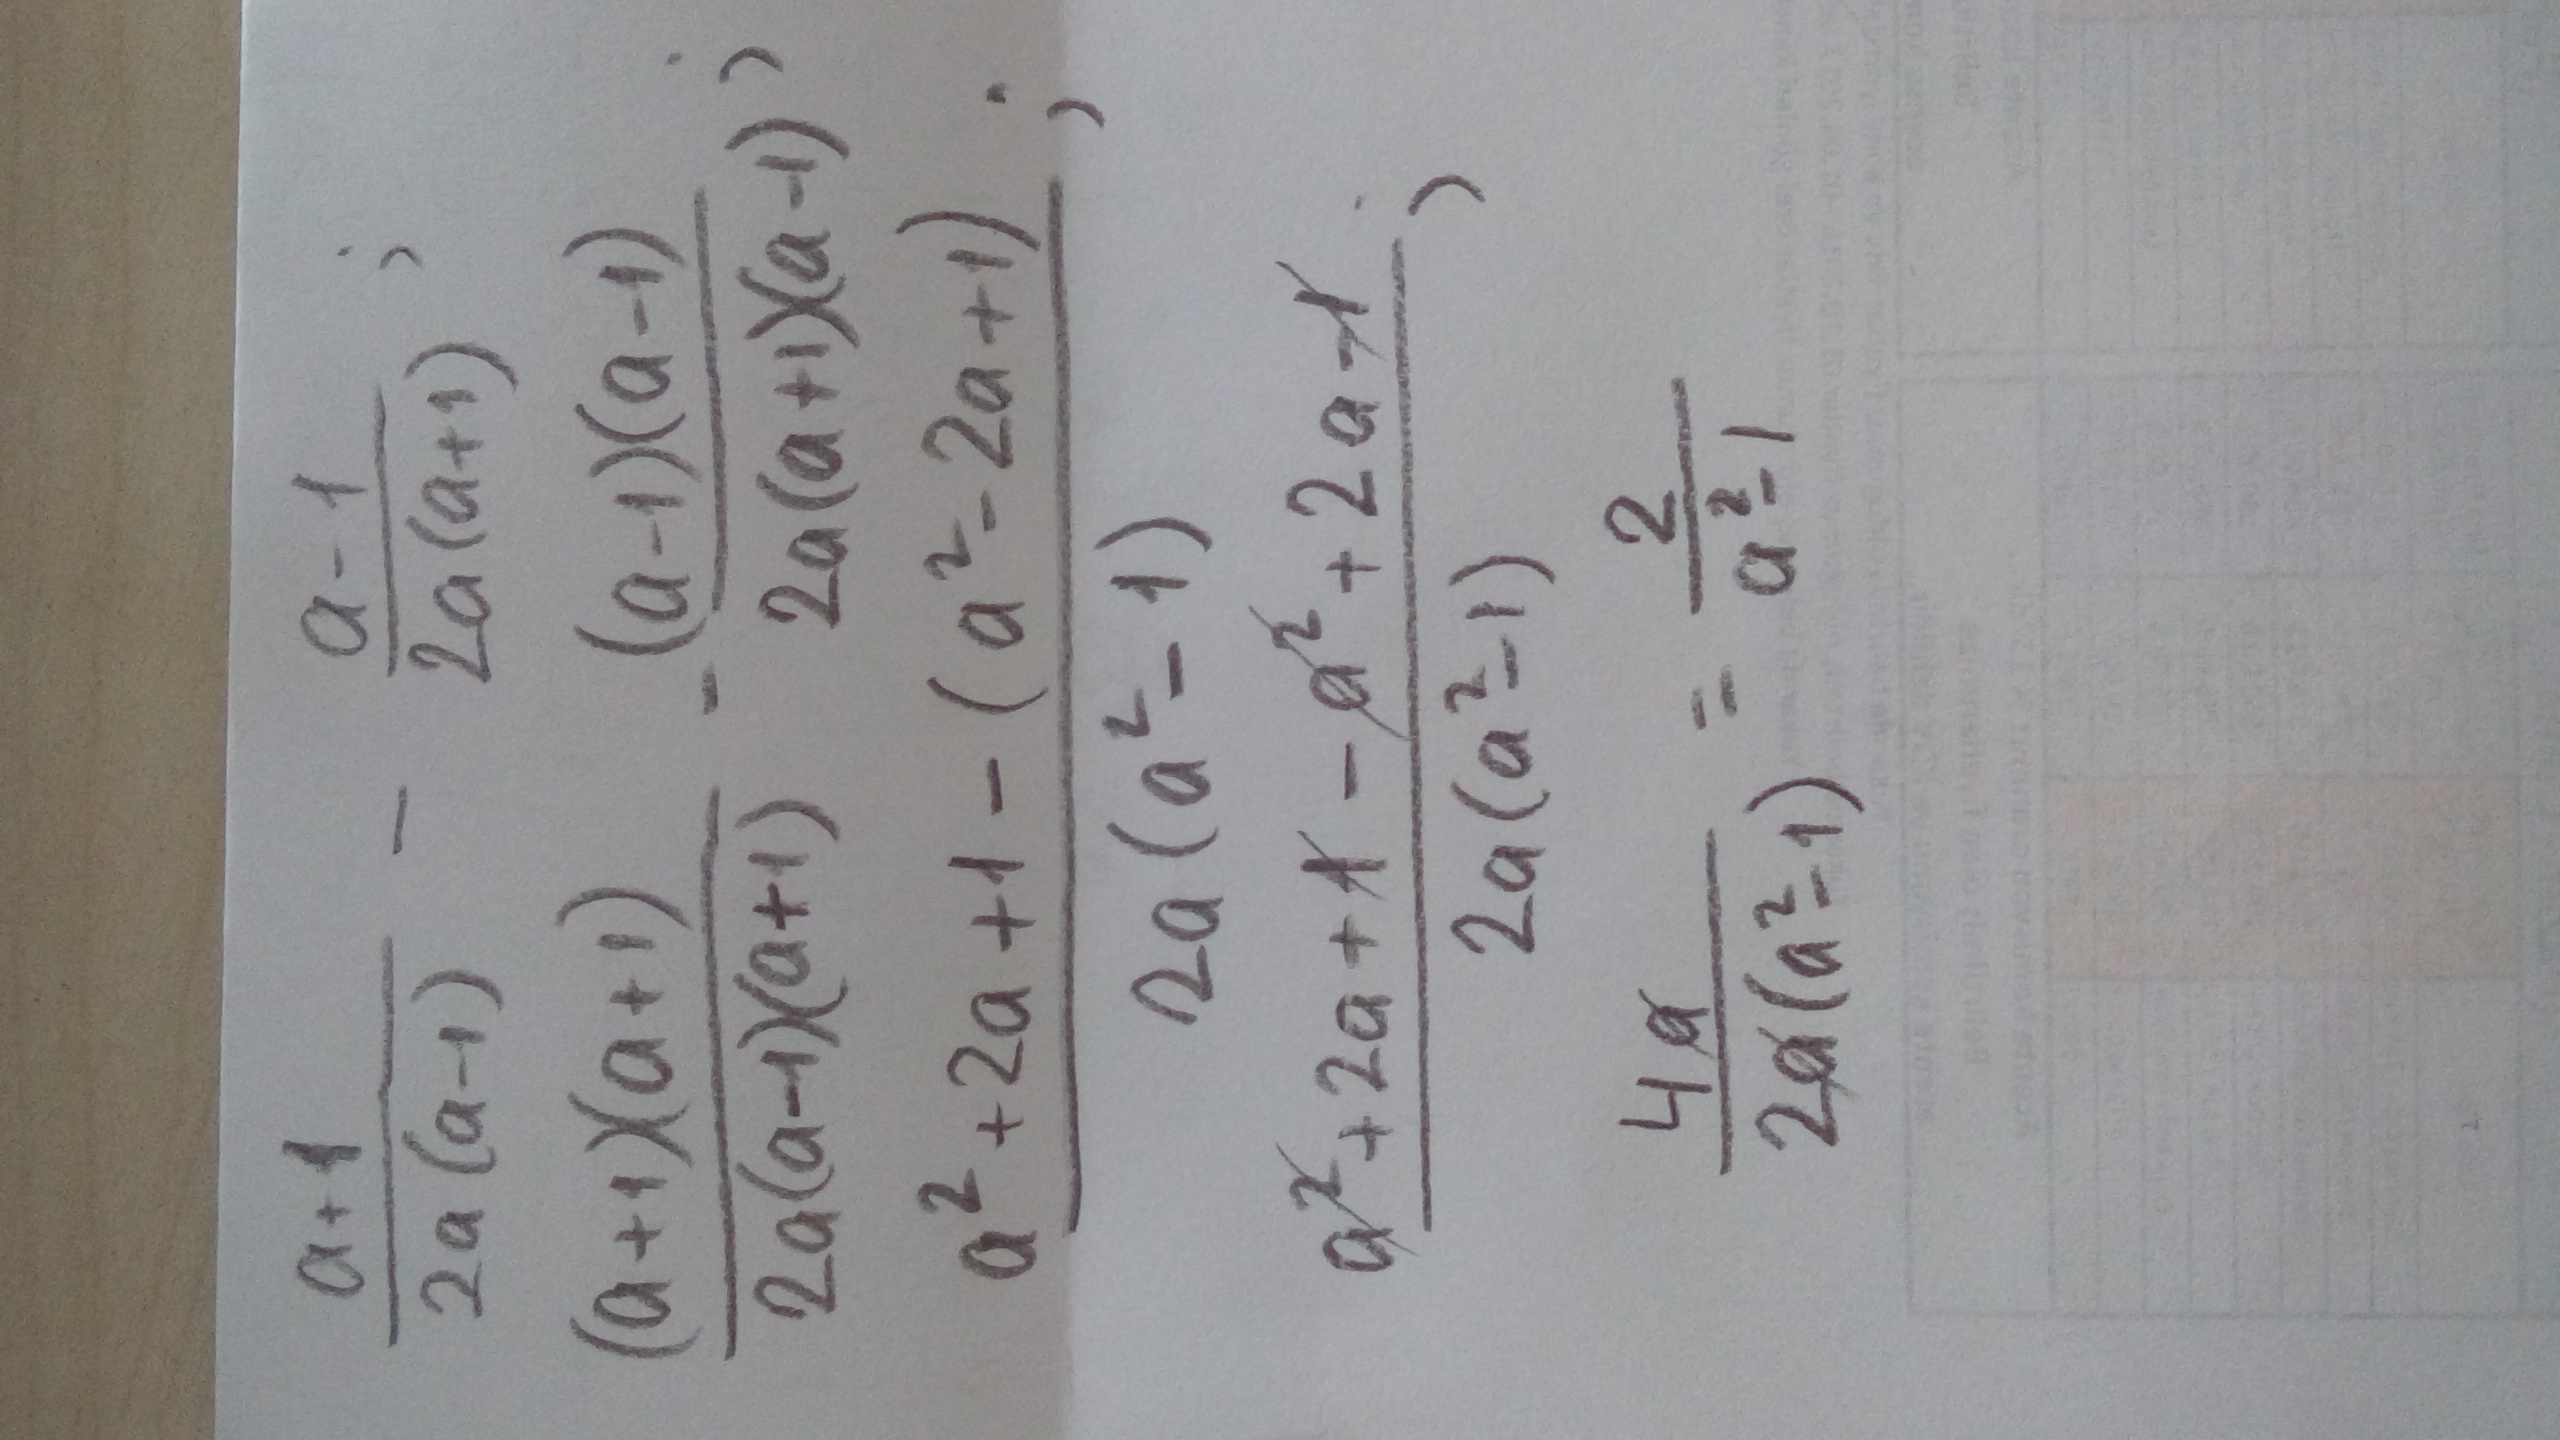 a+1 / 2a(a-1) - a-1 / 2a(a+1) ;
(a+1)(a+1) / 2a(a-1)(a+1) - (a-1)(a-1) / 2a(a+1)(a-1) ;
a²+2a+1-(a²-2a+1) / 2a(a²-1) ;
a²+2a+1-a²+2a-1 / 2a(a²-1) ;
4a / 2a(a²-1) = 2 / a²-1